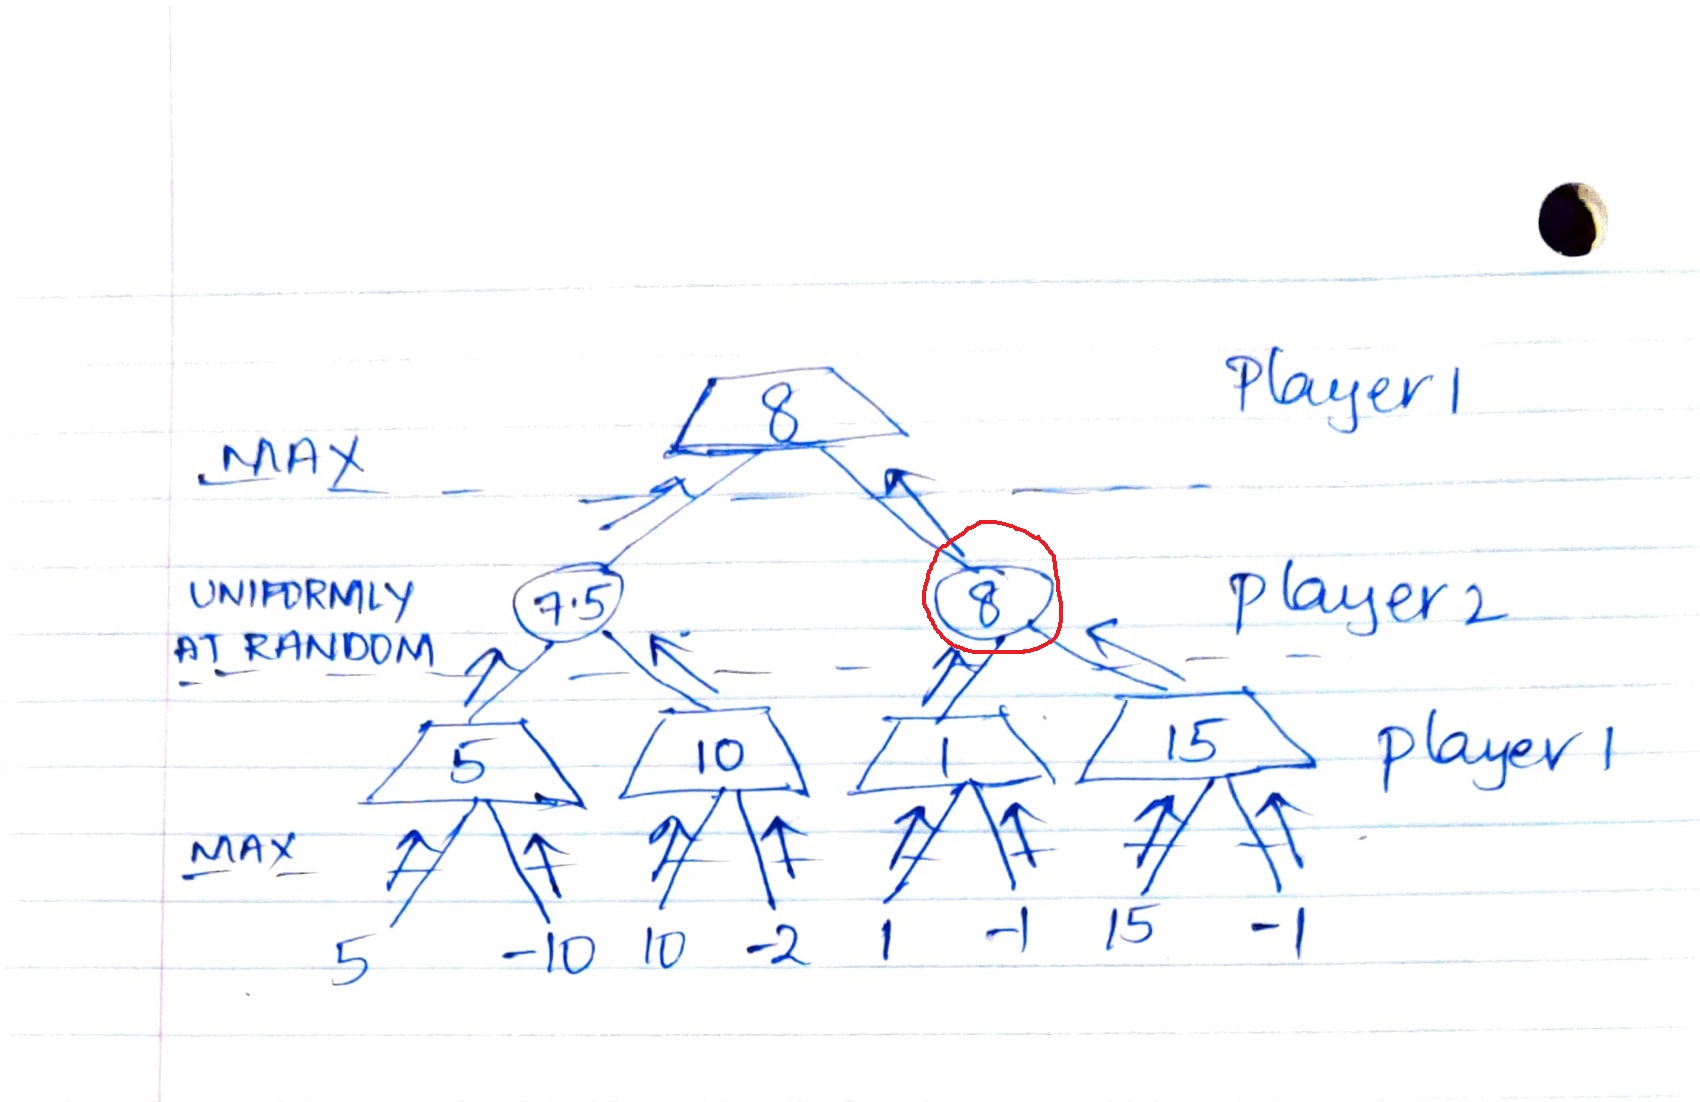 Player 1
8
MAX
UNIFORMLY
AT RANDOM
7.5
8
Player 2
5
10
1
15
player 1
MAX
5
-10
10
-2
1
-1
15
-1